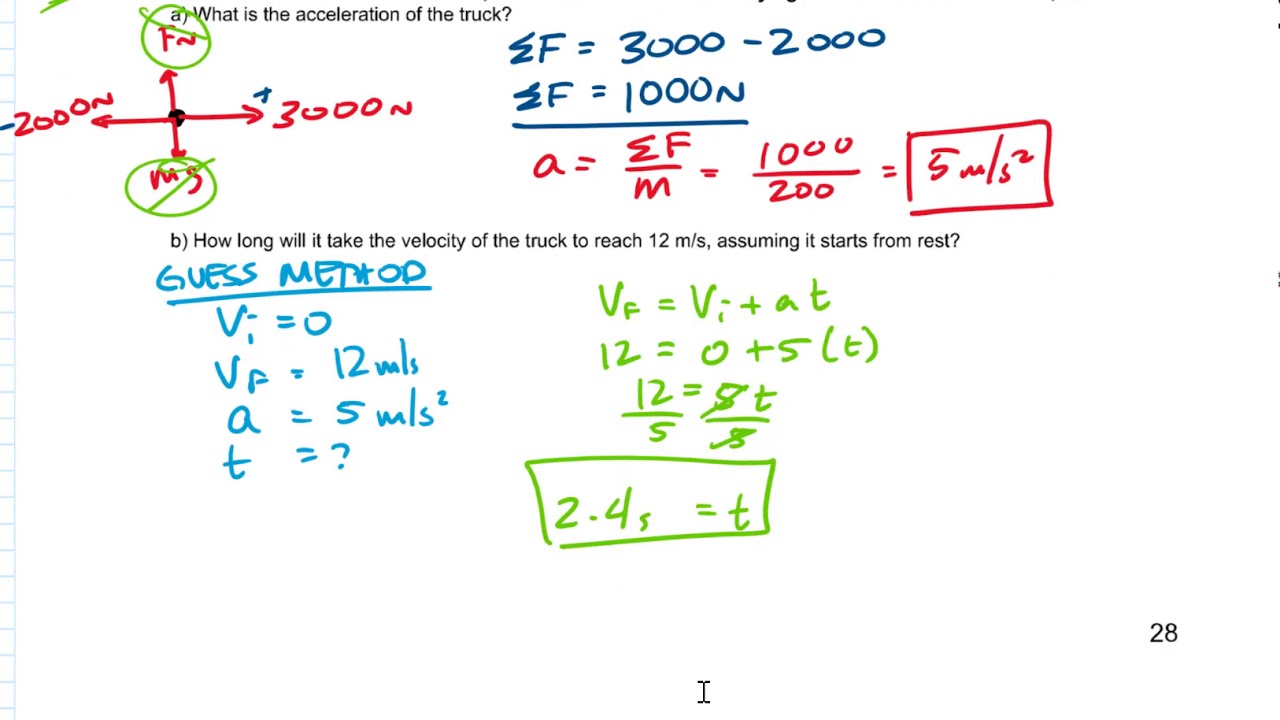 a) What is the acceleration of the truck?
FN
-2000N
+ 3000N
mg
ΣF = 3000 - 2000
ΣF = 1000N
a = ΣF/m = 1000/200 = 5 m/s²
b) How long will it take the velocity of the truck to reach 12 m/s, assuming it starts from rest?
GUESS METHOD
Vi = 0
VF = 12 m/s
a = 5 m/s²
t = ?
VF = Vi + at
12 = 0 + 5(t)
12/5 = 5t/5
2.4s = t
28